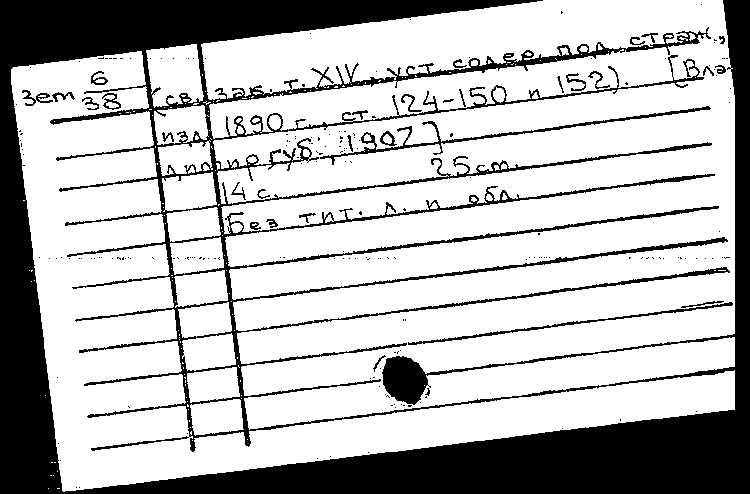 Зет 6/38 (св. зак. т. XIV, уст. содер. под страж.,
изд. 1890 г., ст. 124-150 и 152). [Вла-
димир, губ., 1907].
14 с. 25 cm.
Без тит. л. и обл.